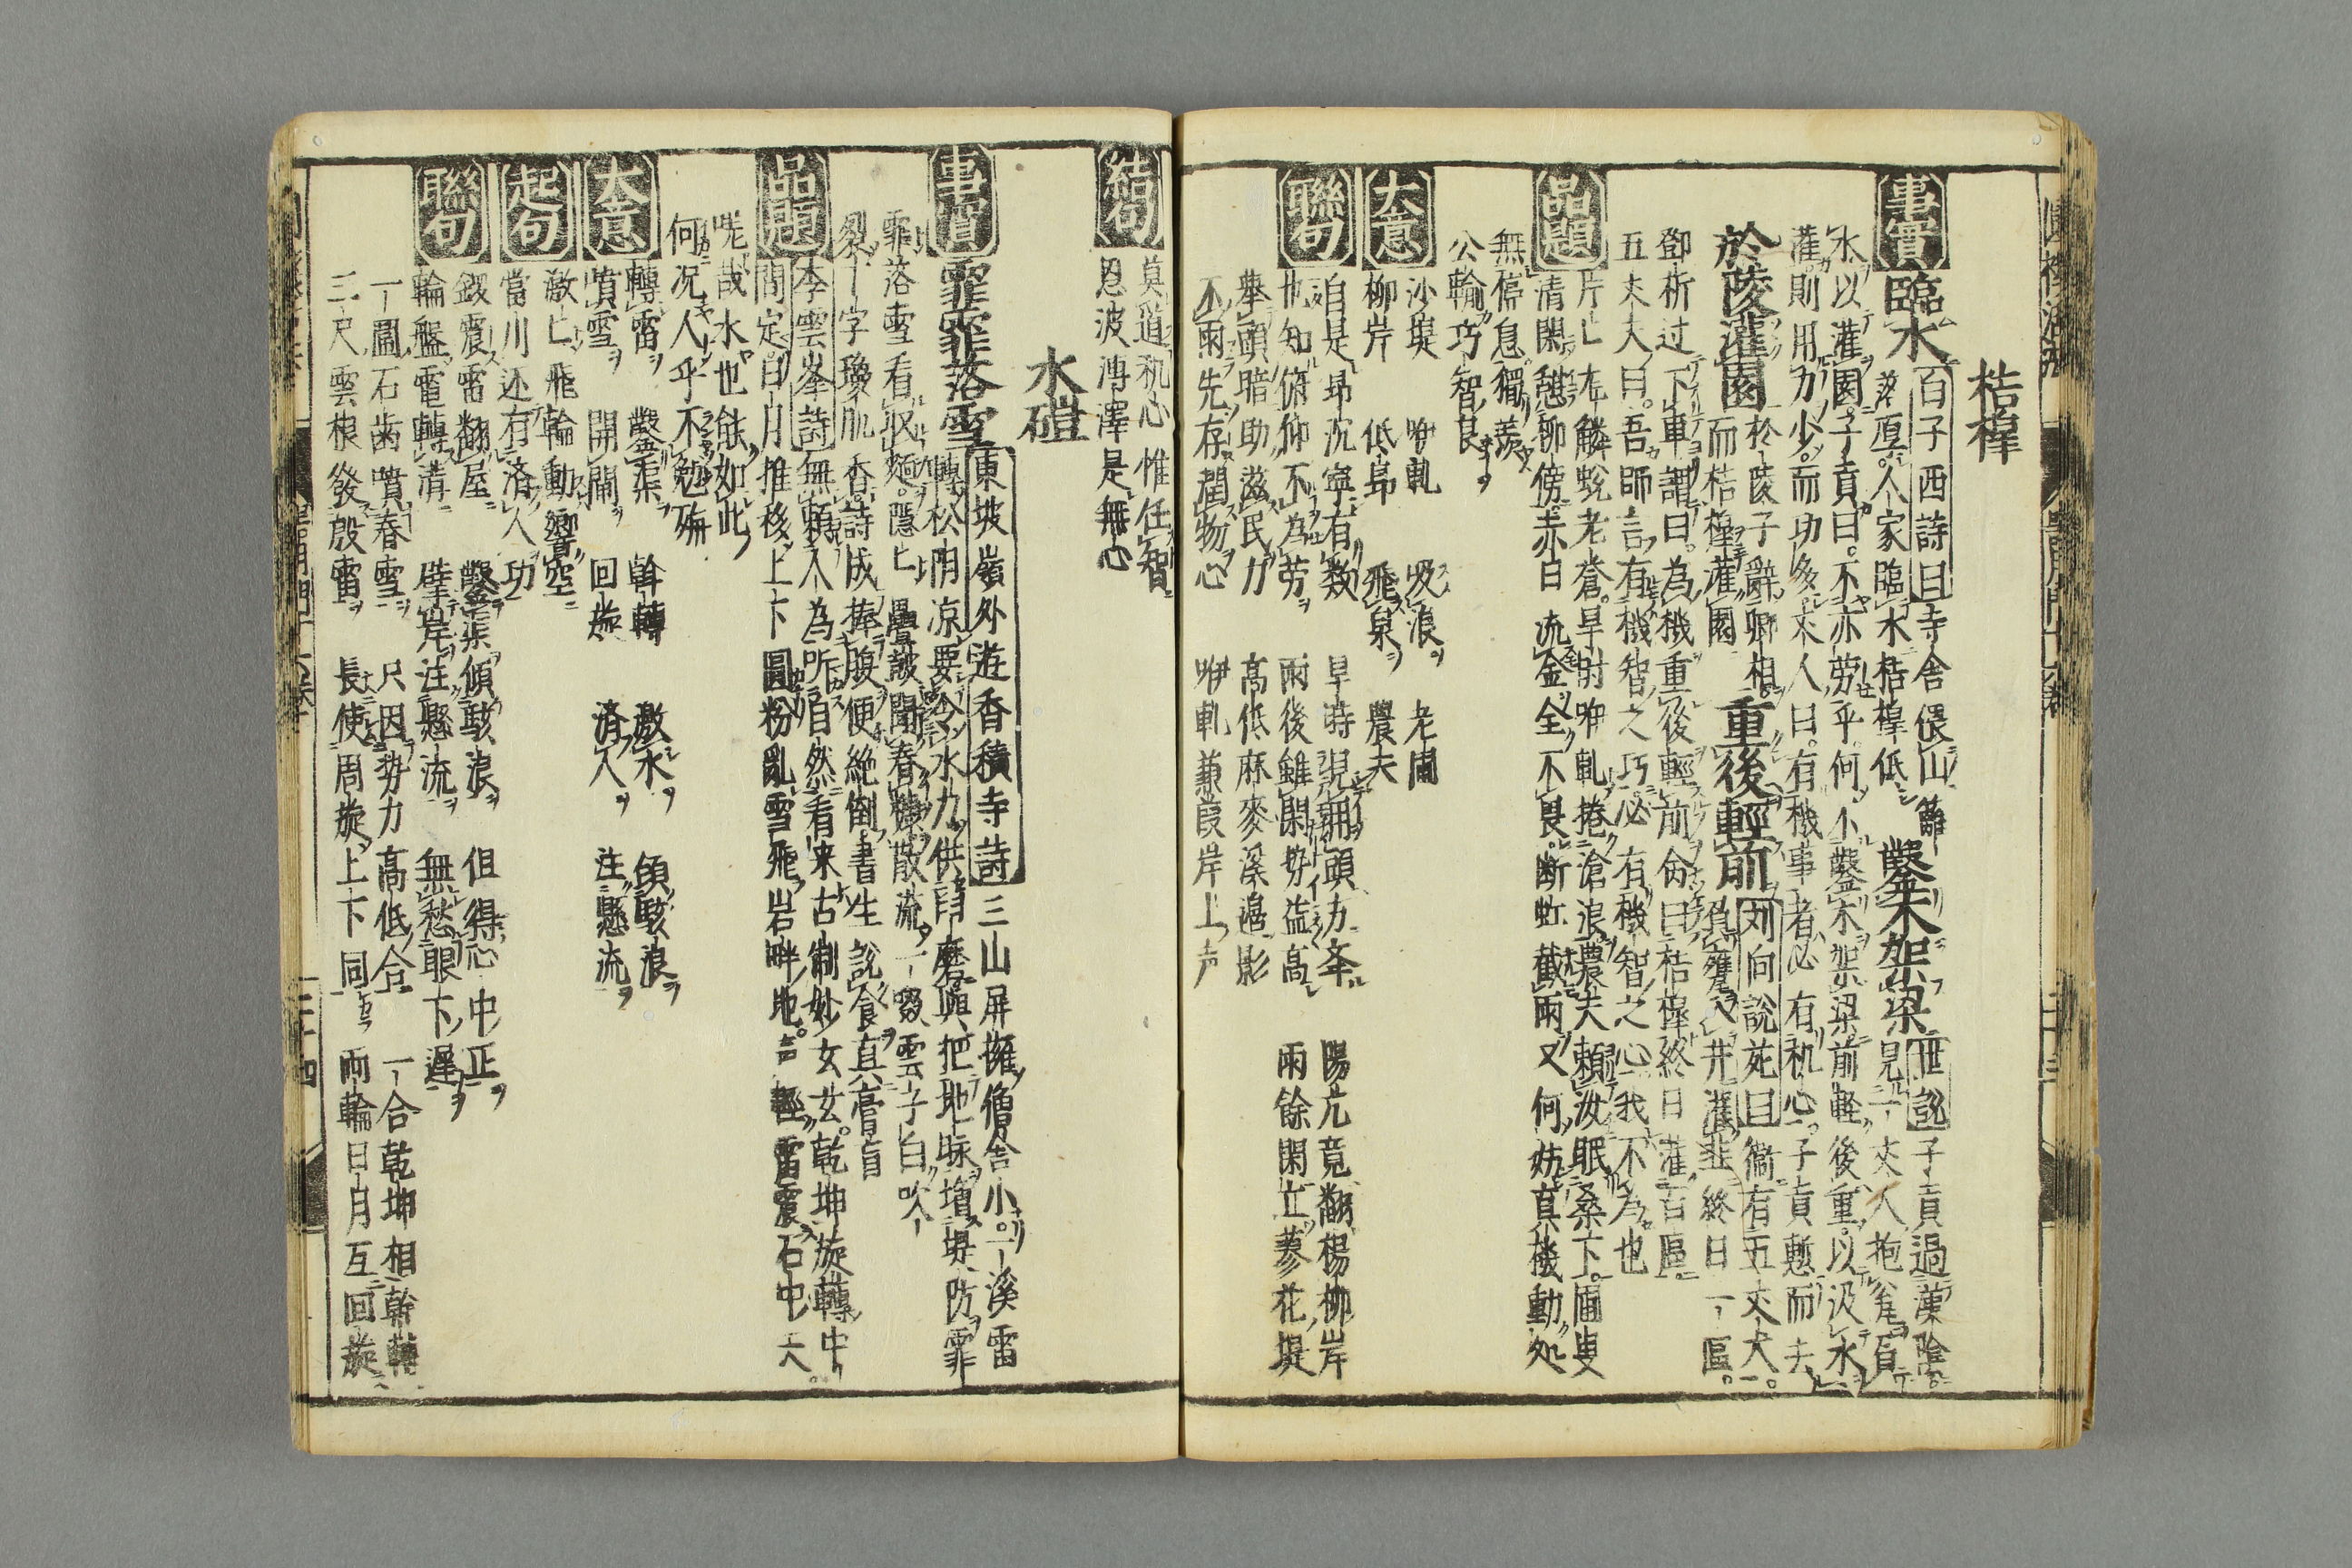 桔槹
事實 臨水 百子西詩曰 寺舍偎山籬
落厚人家臨水桔槹低 鑿木架梁 世説 子貢過漢陰
見一丈人抱瓮負
水以灌園子貢曰不亦労乎何不鑿木架梁前軽後重以汲水
灌則用力少而功多丈人曰有機事者必有机心子貢慙而去
於陵灌園 於陵子辭卿相
而桔槹灌園 重後輕前 刘向說苑曰 衛有五丈夫
負甕入井灌韭終日一區
鄧析过下車謂曰為機重後輕前命曰桔槹終日灌百區
五丈夫曰吾師言有機智之巧必有機智之心我不為也
品題 片〻左鱗蛻老蒼旱時咿軋捲滄浪農夫頼汝眠桑下圃叟
清閑憩柳傍赤白流金全不畏断虹截雨又何妨真機動処
無停息獨羨
公輸巧智良
大意 沙堤 咿軋 吸浪 老圃
柳岸 低昻 飛泉 農夫
聯句 自是昻沉寧有数 旱時 頭力 陽亢竟翻楊柳岸
也知俯仰不為労 雨後雖閑好益高 雨餘閑立蓼花堤
舉頭暗助滋民力 高低麻麥溪邉影
不雨先存潤物心 咿軋蒹葭岸上声
結句 莫道机心惟任智
恩波溥澤是無心
水磑
事實 霏霏落雪 東坡嶺外遊香積寺詩 三山屏擁僧舍小一溪雷
轉松阴凉要令水力供臼磨與把地脉増堤防霏
霏落雪看収麺隱〻疊皷聞舂糠散流一啜雲子白吹
裂十字瓊肌香詩成捧腹便絶倒書生説食真膏肓
品題 李雲峯詩 無頼人為所自然看来古制妙女玄乾坤旋轉中
間定日月推移上下圓粉亂雪飛岩畔地声輕雷震石中天
哤哉水也能如此
何况人乎不勉旃
大意 轉雷 鑿渠 斡轉 激水 傾駭浪
噴雪 開閘 回旋 済人 注懸流
起句 激〻飛輪動響空
當川还有済人功
聯句 鍛震雷翻屋 鑿渠傾駭浪 但得心中正
輪盤電轉溝 壁岸注懸流 無愁眼下遅
一圖石歯噴春雪 只因势力高低合 一合乾坤相斡轉
三尺雲根發殷雷 長使周旋上下同 両輪日月互回旋